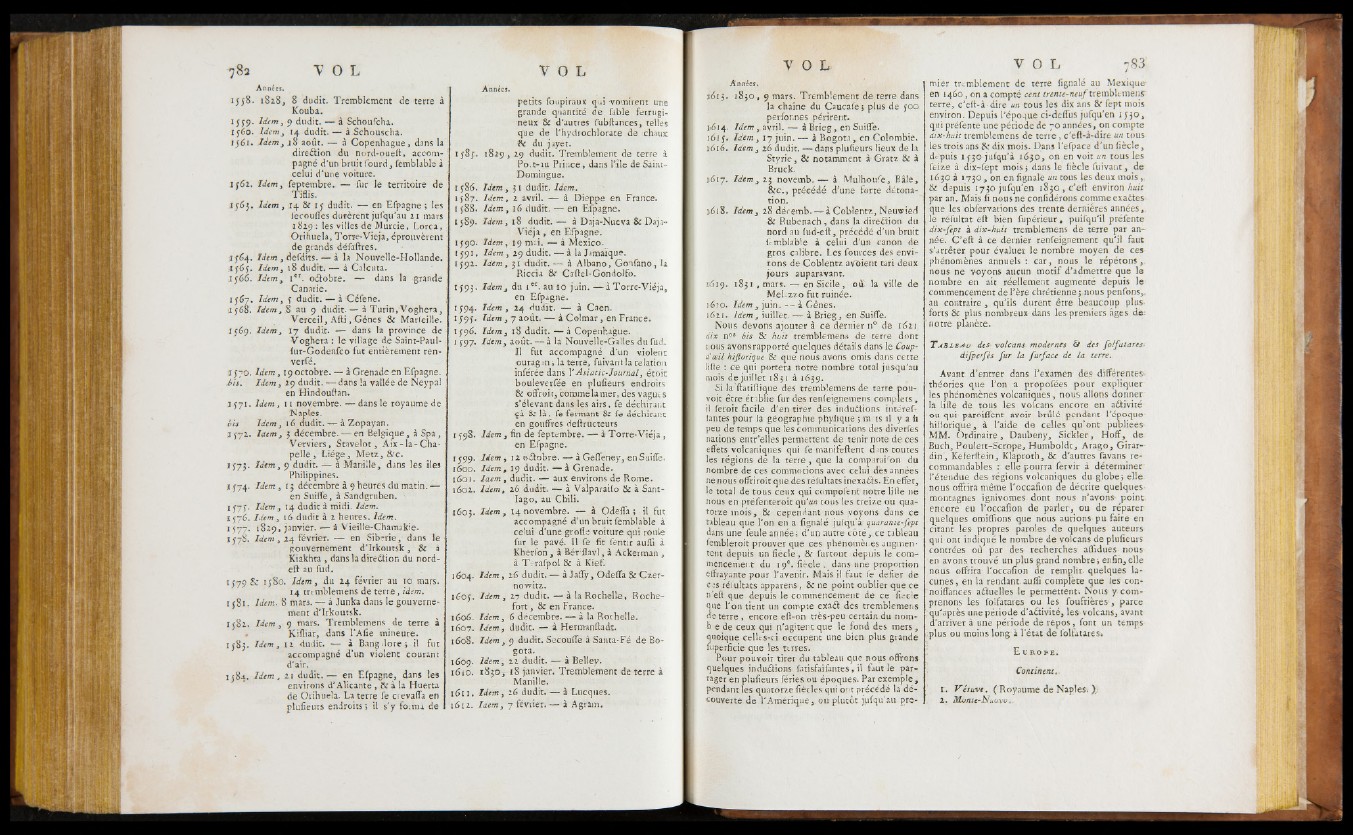 782 VOL
Années.
1558. 1828, 8 dudit. Tremblement de terre à
Kouba.
1559. Idem, 9 dudit. — à Schouscha.
1560. Idem, 14 dudit. — à Schouscha.
1561. Idem, 18 août. — à Copenhague, dans la
direction du nord-ouest, accom-
pagné d'un bruit sourd, semblable à
celui d'une voiture.
1562. Idem, septembre. — sur le territoire de
Tiflis.
1563. Idem, 14 & 15 dudit. — en Espagne; les
secousses durèrent jusqu'au 21 mars
1829: les villes de Murcie, Lorca,
Orihuela, Torre-Vieja, éprouvèrent
de grands désastres.
1564. Idem, desdits. — à la Nouvelle-Hollande.
1565. Idem, 18 dudit. — à Calcuta.
1566. Idem, 1er. octobre. — dans la grande
Canarie.
1567. Idem, 5 dudit. — à Césene.
1568. Idem, 8 au 9 dudit. — à Turin, Voghera,
Verceil, Asti, Gênes & Marseille.
1569. Idem, 17 dudit. — dans la province de
Voghera: le village de Saint-Paul-
sur-Godensco fut entièrement ren-
versé.
1570. Idem, 19 octobre. — à Grenade en Espagne.
bis. Idem, 29 dudit. — dans la vallée de Neypal
en Hindoustan.
1571. Idem, 11 novembre. — dans le royaume de
Naples.
bis Idem, 16 dudit. — à Zopayan.
1572. Idem, 3 décembre. — en Belgique, à Spa,
Verviers, Stavelot, Aix-la-Cha-
pelle, Liége, Metz, &c.
1573. Idem, 9 dudit. — à Manille, dans les îles
Philippines.
1574. Idem, 13 décembre à 9 heures du matin. —
en Suisse, à Sandgruben.
1575. Idem, 14 dudit à midi. Idem.
1576. Idem, 16 dudit à 2 heures. Idem.
1577. 1829, janvier. — à Vieille-Chamakie.
1578. Idem, 24 février. — en Siberie, dans le
gouvernement d'Irkoutsk, & à
Kiakhta, dans la direction du nord-
est au sud.
1579 & 1580. Idem, du 24 février au 10 mars.
14 tremblemens de terre, idem.
1581. Idem. 8 mars. — à Junka dans le gouverne-
ment d'Irkoutsk.
1582. Idem, 9 mars. Tremblemens de terre à
Kisliar, dans l'Asie mineure.
1583. Idem, 12 dudit. — à Bang-lore; il fut
accompagné d'un violent courant
d'air.
1584. Idem, 21 dudit. — en Espagne, dans les
environs d'Alicante, & à la Huerta
de Orihuela. La terre se crevassa en
plusieurs endroits; il s'y forma de
VOL
Années.
petits soupiraux qui vomirent une
grande quantité de sable ferrugi-
neux & d'autres substances, telles
que de l'hydrochlorate de chaux
& du jayet.
1585. 1829, 29 dudit. Tremblement de terre à
Port-au Prince, dans l'île de Saint-
Domingue.
1586. Idem, 31 dudit. Idem.
1587. Idem, 2 avril. — à Dieppe en France.
1588. Idem, 16 dudit. — en Espagne.
1589. Idem, 18 dudit. — à Daja-Nueva & Daja-
Viéja, en Espagne.
1590. Idem, 19 mai. — à Mexico.
1591. Idem, 29 dudit. — à la Jamaïque.
1592. Idem, 31 dudit. — à Albano, Gensano, la
Riccia & Castel-Gondolfo.
1593. Idem, du 1er. au 10 juin. — à Torre-Viéja,
en Espagne.
1594. Idem, 24 dudit. — à Caen.
1595. Idem, 7 août. — à Colmar, en France.
1596. Idem, 18 dudit. — à Copenhague.
1597. Idem, août. — à la Nouvelle-Galles du sud.
Il fut accompagné d'un violent
ouragan, la terre, suivant la relation
insérée dans l'Asiatic-Journal, étoit
bouleversée en plusieurs endroits
& offroit, comme la mer, des vagues
s'élevant dans les airs, se déchirant
çà & là, se fermant & se déchirant
en gouffres destructeurs
1598. Idem, fin de septembre. — à Torre-Viéja,
en Espagne.
1599. Idem, 12 octobre. — à Gesseney, en Suisse.
1600. Idem, 19 dudit. — à Grenade.
1601. Idem, dudit. — aux environs de Rome.
1602. Idem, 26 dudit. — à Valparaiso & à Sant-
Iago, au Chili.
1603. Idem, 14 novembre. — à Odessa; il fut
accompagné d'un bruit semblable à
celui d'une grosse voiture qui roule
sur le pavé. Il se fit sentir aussi à
Kherson, à Berislavl, à Ackerman,
à Tirafpol & à Kief.
1604. Idem, 26 dudit. — à Jassy, Odessa & Czer-
nowitz.
1605. Idem, 27 dudit. — à la Rochelle, Roche-
fort, & en France.
1606. Idem, 6 decembre. — à la Rochelle.
1607. Idem, dudit. — à Hermanstadt.
1608. Idem, 9 dudit. Secousse à Santa-Fé de Bo-
gota.
1609. Idem, 22 dudit. — à Belley.
1610. 1830, 18 janvier. Tremblement de terre à
Manille.
1611. Idem, 26 dudit. — à Lucques.
1612. Idem, 7 février. — à Agram.
VOL
Années.
1613. 1830, 9 mars. Tremblement de terre dans
la chaîne du Caucase; plus de 500
personnes périrent.
1614. Idem, avril. — à Brieg, en Suisse.
1615. Idem, 17 juin. — à Bogota, en Colombie.
1616. Idem, 26 dudit. — dans plusieurs lieux de la
Styrie, & notamment à Gratz & à
Bruck.
1617. Idem, 23 novemb. — à Mulhouse, Bâle,
&c., précédé d'une forte détona-
tion.
1618. Idem, 28 décemb. — à Coblentz, Neuwied
& Rubenach, dans la direction du
nord au sud-est, précédé d'un bruit
semblable à celui d'un canon de
gros calibre. Les sources des envi-
rons de Coblentz avoient tari deux
jours auparavant.
1619. 1831, mars. — en Sicile, où la ville de
Melazzo fut ruinée.
1620. Idem, juin. — à Gênes.
1621. Idem, juillet. — à Brieg, en Suisse.
Nous devons ajouter à ce dernier n° de 1621
dix nos bis & huit tremblemens de terre dont
nous avons rapporté quelques détails dans le Coup-
d'œil historique & que nous avons omis dans cette
liste: ce qui portera notre nombre total jusqu'au
mois de juillet 1831 à 1639.
Si la statistique des tremblemens de terre pou-
voit être établie sur des renseignemens complets,
il seroit facile d'en tirer des inductions intéres-
santes pour la géographie physique; mais il y a si
peu de temps que les communications des diverses
nations entr'elles permettent de tenir note de ces
effets volcaniques qui se manifestent dans toutes
les régions de la terre, que la comparaison du
nombre de ces commotions avec celui des années
ne nous offriroit que des résultats inexacts. En effet,
le total de tous ceux qui composent notre liste ne
nous en présenteroit qu'un tous les treize ou qua-
torze mois, & cependant nous voyons dans ce
tableau que l'on en a signalé jusqu'à quarante-sept
dans une seule année: d'un autre côté, ce tableau
sembleroit prouver que ces phénomènes augmen-
tent depuis un siècle, & surtout depuis le com-
mencement du 19e. siècle, dans une proportion
effrayante pour l'avenir. Mais il faut se défier de
ces résultats apparens, & ne point oublier que ce
n'est que depuis le commencement de ce siècle
que l'on tient un compte exact des tremblemens
de terre, encore est-on très-peu certain du nom-
bre de ceux qui n'agitent que le fond des mers,
quoique celles-ci occupent une bien plus grande
superficie que les terres.
Pour pouvoir tirer du tableau que nous offrons
quelques inductions satisfaisantes, il faut le par-
tager en plusieurs séries ou époques. Par exemple,
pendant les quatorze siècles qui ont précédé la dé-
couverte de l'Amérique, ou plutôt jusqu'au pre-
VOL 783
mier tremblement de terre signalé au Mexique
en 1460, on a compté cent trente-neuf tremblemens
terre, c'est-à dire un tous les dix ans & sept mois
environ. Depuis l'époque ci-dessus jusqu'en 1530,
qui présente une période de 70 années, on compte
dix-huit tremblemens de terre, c'est-à-dire un tous
les trois ans & dix mois. Dans l'espace d'un siècle,
depuis 1530 jusqu'à 1630, on en voit un tous les
seize à dix-sept mois; dans le siècle suivant, de
1630 à 1730, on en signale un tous les deux mois,
& depuis 1730 jusqu'en 1830, c'est environ huit
par an. Mais si nous ne considérons comme exactes
que les observations des trente dernières années,
le résultat est bien supérieur, puisqu'il présente
dix-sept à dix-huit tremblemens de terre par an-
née. C'est à ce dernier renseignement qu'il faut
s'arrêter pour évaluer le nombre moyen de ces
phénomènes annuels: car, nous le répétons,
nous ne voyons aucun motif d'admettre que le
nombre en ait réellement augmenté depuis le
commencement de l'ère chrétienne; nous pensons,
au contraire, qu'ils durent être beaucoup plus
forts & plus nombreux dans les premiers âges de
notre planète.
TABLEAU des volcans modernes & des solfatares
dispersés sur la surface de la terre.
Avant d'entrer dans l'examen des différentes
théories que l'on a proposées pour expliquer
les phénomènes volcaniques, nous allons donner
la liste de tous les volcans encore en activité
ou qui paroissent avoir brûlé pendant l'époque
historique, à l'aide de celles qu'ont publiées
MM. Ordinaire, Daubeny, Sickler, Hoff, de
Buch, Poulett-Scrope, Humboldt, Arago, Girar-
din, Keferstein, Klaproth, & d'autres savans re-
commandables: elle pourra servir à déterminer
l'étendue des régions volcaniques du globe; elle
nous offrira même l'occasion de décrire quelques
montagnes ignivomes dont nous n'avons point
encore eu l'occasion de parler, ou de réparer
quelques omissions que nous aurions pu faire en
citant les propres paroles de quelques auteurs
qui ont indiqué le nombre de volcans de plusieurs
contrées où par des recherches assidues nous
en avons trouvé un plus grand nombre; enfin, elle
nous offrira l'occasion de remplir quelques la-
cunes, en la rendant aussi complète que les con-
noissances actuelles le permettent. Nous y com-
prenons les solfatares ou les soufrières, parce
qu'après une période d'activité, les volcans, avant
d'arriver à une période de repos, sont un temps
plus ou moins long à l'état de solfatares.
EUROPE.
Continent.
1. Vésuve. (Royaume de Naples.)
2. Monte-Nuovo.